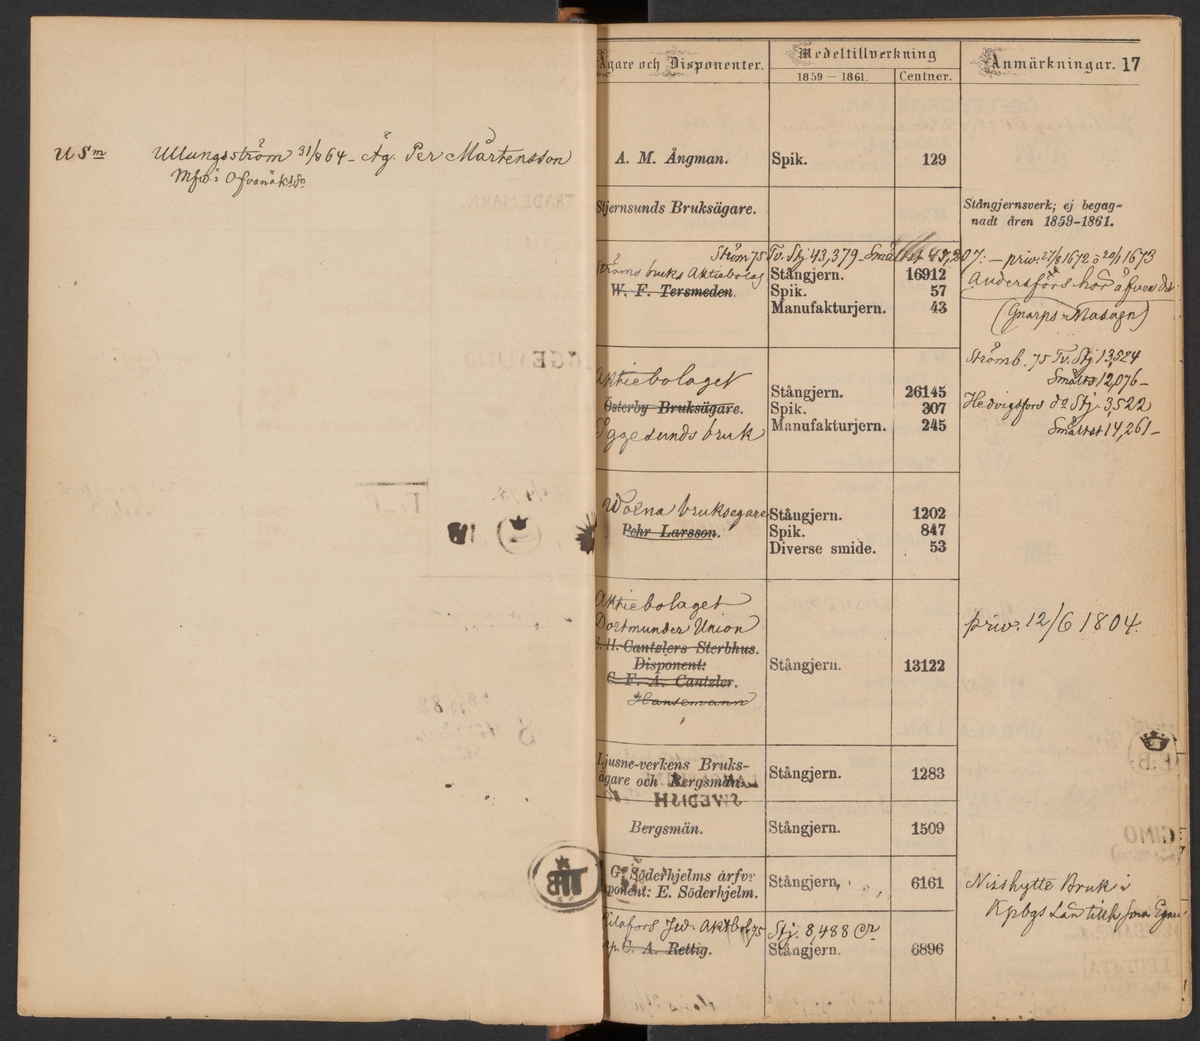 USm Ullungsström 31/8 64 - Äg. Per Mårtensson
Mfw i Ofvanåk
Ägare och Disponenter.
Medeltillverkning
1859 – 1861.
Centner.
Anmärkningar. 17
A. M. Ångman.
Spik.
129
Stjernsunds Bruksägare.
Stångjernsverk; ej begag-
nadt åren 1859-1861.
Ström 75 Tv. Stj 43,379 - Smältst 49,207: - priv. 27/8 1672 o 20/1 1673
Ströms bruks Aktiebolag
W. F. Tersmeden.
Stångjern. 16912
Spik. 57
Manufakturjern. 43
Andersfors hör äfven dit
(Gnarps-Masugn)
Aktiebolaget
Österby Bruksägare.
Iggesunds bruk
Stångjern. 26145
Spik. 307
Manufakturjern. 245
Strömb. 75 Tv. Stj 13,524
Smältst 12,076 -
Hedvigsfors do Stj. 3,522
Smältst 14,261 -
Wolna bruksegare
Pehr Larsson.
Stångjern. 1202
Spik. 847
Diverse smide. 53
Aktiebolaget
Dortmunder Union
H. Cantzlers Sterbhus.
Disponent:
C. F. A. Cantzler.
Hansemann
Stångjern. 13122
priv. 12/6 1804.
Ljusne-verkens Bruks-
ägare och Bergsmän.
Stångjern. 1283
Bergsmän.
Stångjern. 1509
G. Söderhjelms arfvr
sponent: E. Söderhjelm.
Stångjern. 6161
Nisshytte Bruk i
Kpbgs Län tillh
Kilafors Jw. Aktbol 75 Stj. 8,488 Cr
C. A. Rettig.
Stångjern. 6896